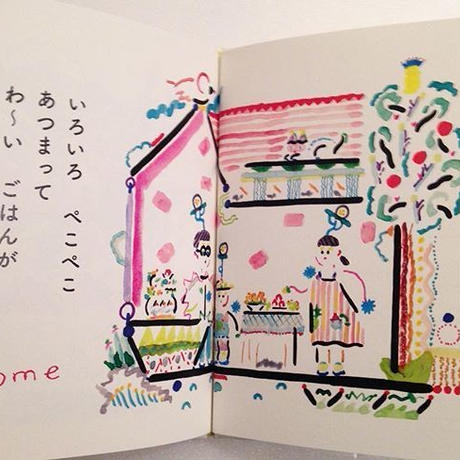 いろいろ ぺこぺこ
あつまって
わ〜い ごはんが
ome